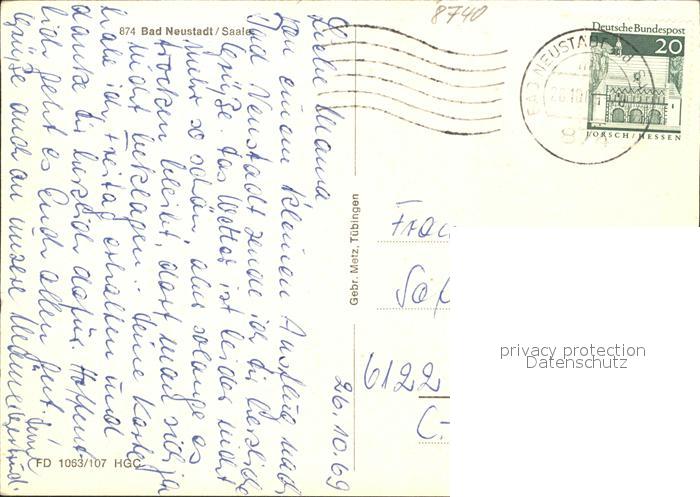 8740
874 Bad Neustadt / Saale
Deutsche Bundespost
20
LORSCH / HESSEN
BAD NEUSTADT
26.10.
874
Gebr. Metz, Tübingen
26.10.69
Liebe Mama
Von einem kleinen Ausflug nach
Bad Neustadt sende ich dir herzliche
Grüße. das Wetter ist leider nicht
mehr so schön, aber solange es
trocken bleibt, darf man sich ja
nicht beklagen. deine Karte
habe ich Freitag erhalten und
danke dir herzlich dafür. Hoffent
lich geht es Euch allen gut.
Grüße auch an unsere
Frau
6122
privacy protection
Datenschutz
FD 1063/107 HGC